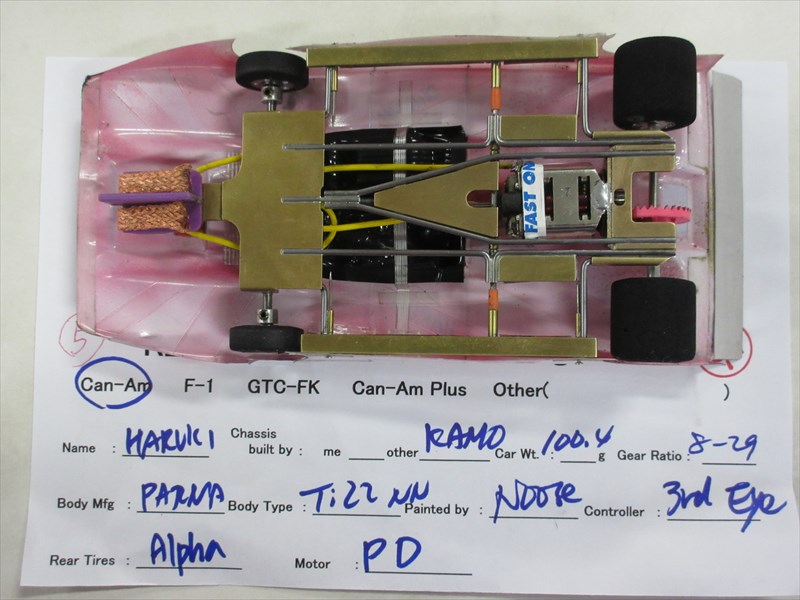 FAST ON
5
Can-Am F-1 GTC-FK Can-Am Plus Other( )
Name : HARUKI Chassis built by : me ___ other KAMO Car Wt. : 100.4 g Gear Ratio : 8-29
Body Mfg : PARMA Body Type : Ti22 NN Painted by : NOOSE Controller : 3rd Eye
Rear Tires : Alpha Motor : PD